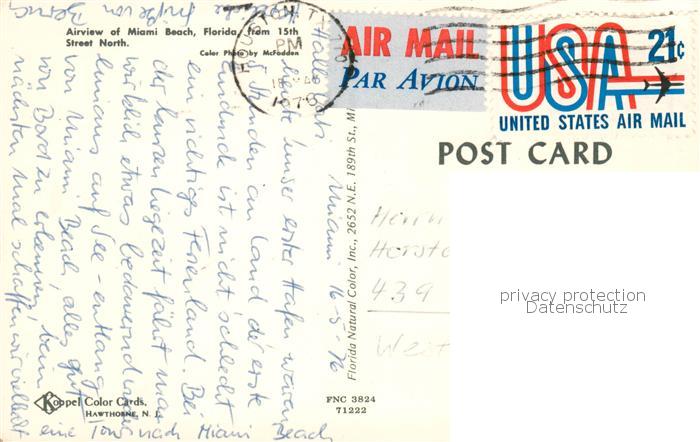 Airview of Miami Beach, Florida, from 15th
Street North.
Color Photo by McFadden
HOUSTON, TX
PM
1976
AIR MAIL
PAR AVION
USA 21c
UNITED STATES AIR MAIL
POST CARD
Miami 16-5-76
Hallo
heute unser erster Hafen waren
Stunden an Land der erste
ist nicht schlecht
ein richtiges Ferienland. Bei
der kurzen Liegezeit fährt man
wirklich etwas bedauernd wieder
hinaus auf See - entlang
von Miami Beach, alles gut
von Bord zu erkennen, beim
nächsten mal schaffen wir vielleicht
eine Tour nach Miami Beach
Florida Natural Color, Inc., 2652 N.E. 189th St., Mi
Herrn
Horst
439
West
privacy protection
Datenschutz
Koppel Color Cards.
HAWTHORNE, N. J.
FNC 3824
71222